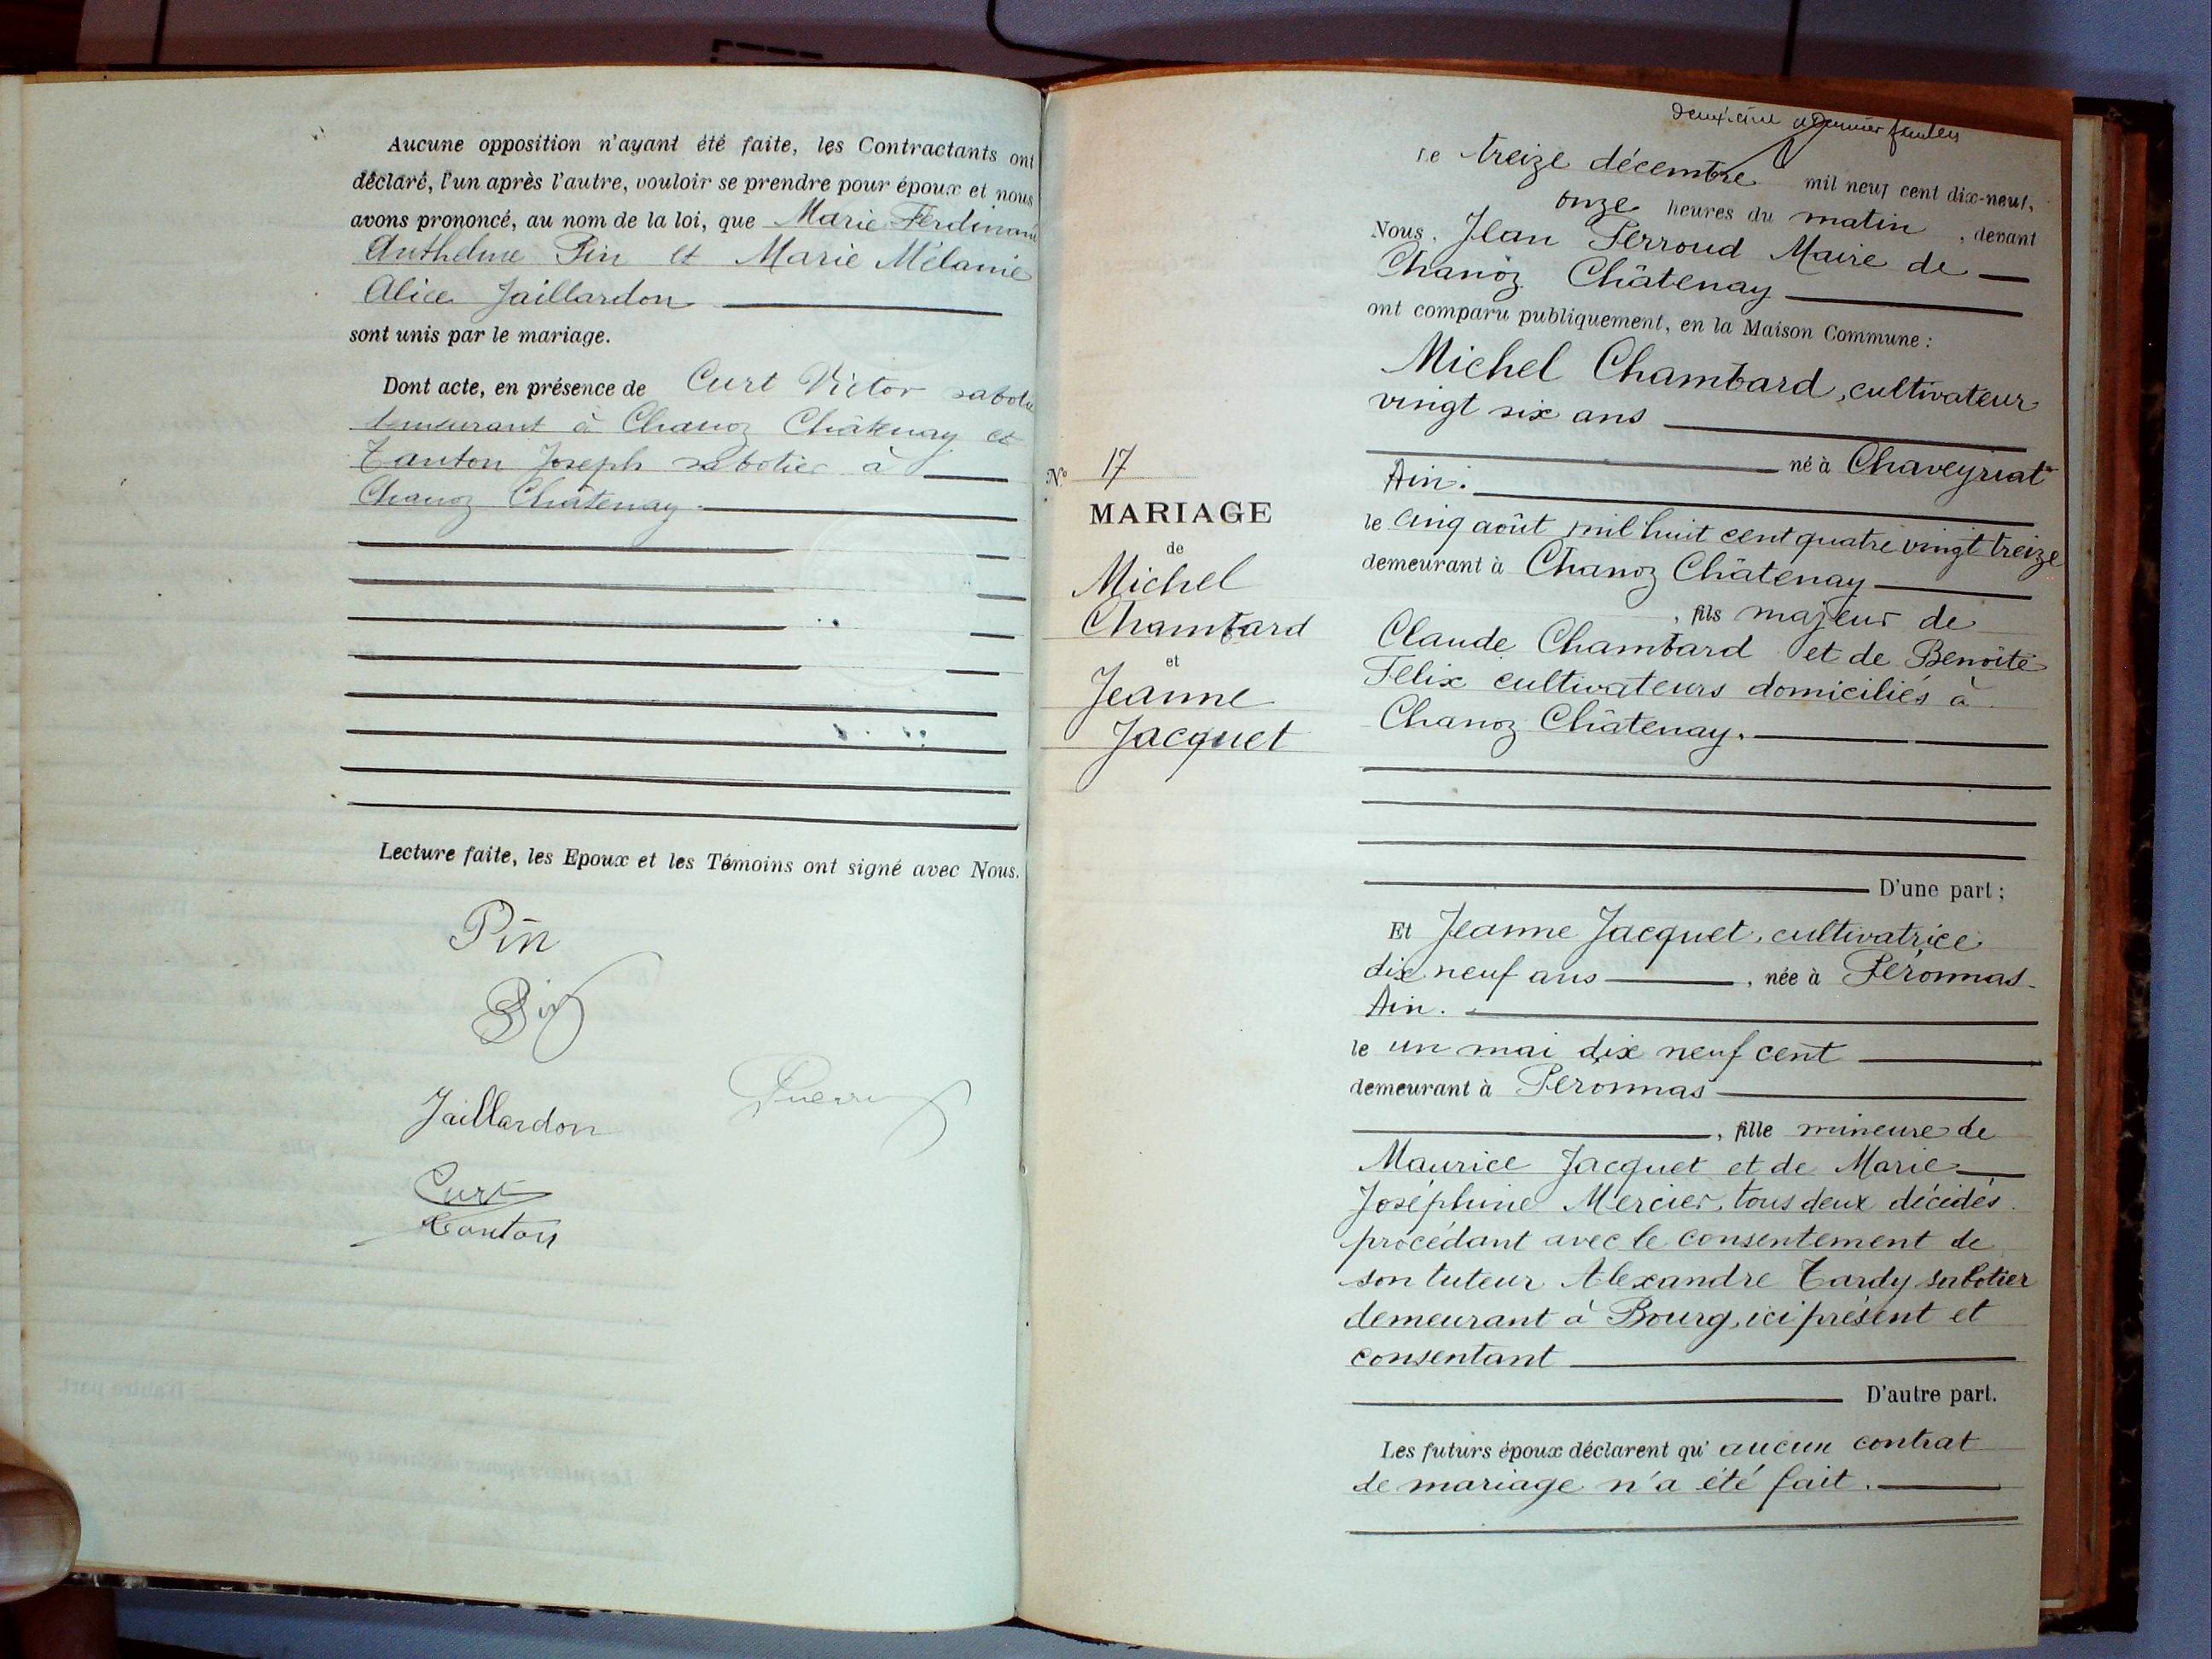 Aucune opposition n'ayant été faite, les Contractants ont
déclaré, l'un après l'autre, vouloir se prendre pour époux et nous
avons prononcé, au nom de la loi, que Marie Ferdinand
Anthelme Pin et Marie Mélanie
Alice Jaillardon
sont unis par le mariage.
Dont acte, en présence de Curt Victor
demeurant à Chanoz Châtenay et
Tanton Joseph sabotier à
Chanoz Châtenay.
Lecture faite, les Epoux et les Témoins ont signé avec Nous.
Pin
Jaillardon
Curt
Tanton
deuxième dernier
Le treize décembre mil neuf cent dix-neuf,
onze heures du matin, devant
Nous, Jean Perroud Maire de
Chanoz Châtenay
ont comparu publiquement, en la Maison Commune :
Michel Chambard, cultivateur
vingt six ans
né à Chaveyriat
Ain.
le cinq août mil huit cent quatre vingt treize
demeurant à Chanoz Châtenay
, fils majeur de
Claude Chambard et de Benoîte
Félix cultivateurs domiciliés à
Chanoz Châtenay.
D'une part ;
N° 17
MARIAGE
de
Michel
Chambard
et
Jeanne
Jacquet
Et Jeanne Jacquet, cultivatrice
dix neuf ans , née à Péronnas
Ain.
le un mai dix neuf cent
demeurant à Péronnas
, fille mineure de
Maurice Jacquet et de Marie
Joséphine Mercier, tous deux décédés
procédant avec le consentement de
son tuteur Alexandre Tardy sabotier
demeurant à Bourg, ici présent et
consentant
D'autre part.
Les futurs époux déclarent qu' aucun contrat
de mariage n'a été fait.